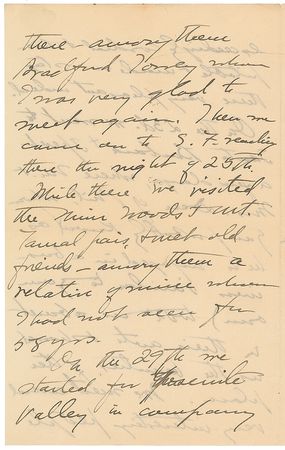 there - among them
Bradford Torrey whom
I was very glad to
meet again. Then we
came on to S. F. reaching
there the night of 25th.
While there we visited
the Muir Woods & Mt.
Tamalpais, & met old
friends - among them a
relative of mine whom
I had not seen for
58 yrs.
On the 29th we
started for Yosemite
Valley in company